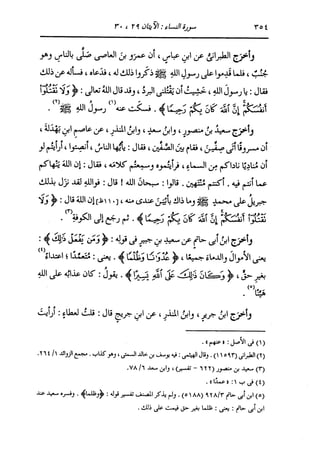 ٣٥٤ سورة النساء : الآيتان ٢٩ ، ٣٠
وأخرج الطبرانىُّ عن ابنِ عباسٍ ، أن عمرَو بنَ العاصى صلَّى بالناسِ وهو
جُنُبٌ ، فلما قدِموا على رسولِ اللهِ ﷺ ذكَروا ذلك له ، فدَعاه ، فسأَله عن ذلك
فقال : يا رسولَ اللهِ ، خشِيتُ أن يَقْتُلَنى البردُ ، وقد قال اللهُ تعالى : ﴿ وَلَا نَقْتُلُوٓا
أَنفُسَكُمْ إِنَّ اللَّهَ كَانَ بِكُمْ رَحِيمًا ﴾ . فسكَت عنه(١) رسولُ اللهِ ﷺ(٢) .
وأخرج سعيدُ بنُ منصورٍ ، وابنُ سعدٍ ، وابنُ المنذرِ ، عن عاصمِ ابنِ بَهْدلةَ ،
أن مسروقًا أتَى صِفِّينَ ، فقام بينَ الصَّفَّينِ ، فقال : يأيُّها الناسُ ، أنصِتوا ، أرأيْتُم لو
أن مُناديًا ناداكم مِن السماءِ ، فرأيتُموه وسمِعتُم كلامَه ، فقال : إن اللهَ يَنْهاكم
عما أنتم فيه . أكنتم مُنْتَهِين . قالوا : سبحانَ اللهِ ! قال : فواللهِ لقد نزَل بذلك
جبريلُ على محمدٍ ﷺ وما ذاك بأبْيَنَ عندى منه [١١٠ظ] إن اللهَ قال : ﴿ وَلَا
نَقْتُلُوٓا أَنفُسَكُمْ إِنَّ اللَّهَ كَانَ بِكُمْ رَحِيمًا ﴾ . ثم رجَع إلى الكوفةِ(٣) .
وأخرج ابنُ أبى حاتمٍ عن سعيدِ بنِ جبيرٍ فى قولِه : ﴿ وَمَن يَفْعَلْ ذَٰلِكَ ﴾ :
يعنى الأموالَ والدماءَ جميعًا ، ﴿ عُدْوَٰنًا وَظُلْمًا ﴾ . يعنى : مُتعمِّدًا(٤) اعتداءً
بغيرِ حقٍّ ، ﴿ وَكَانَ ذَٰلِكَ عَلَى اللَّهِ يَسِيرًا ﴾ . يقولُ : كان عذابُه على اللهِ
هيِّنًا(٥) .
وأخرج ابنُ جريرٍ ، وابنُ المنذرِ ، عن ابنِ جريجٍ قال : قلتُ لعطاءٍ : أرأيتَ
(١) فى الأصل : « عنهم » .
(٢) الطبرانى (١١٥٩٣) . وقال الهيثمى : فيه يوسف بن خالد السمتى ، وهو كذاب . مجمع الزوائد ٢٦٤/١ .
(٣) سعيد بن منصور (٦٢٢ - تفسير) ، وابن سعد ٧٨/٦ .
(٤) فى ب ١ : « عمدًا » .
(٥) ابن أبى حاتم ٩٢٨/٣ (٥١٨٨) . ولم يذكر المصنف تفسير قوله : ﴿ وظلما ﴾ . وفسره سعيد عند
ابن أبى حاتم : يعنى : ظلما بغير حق فيمت على ذلك .